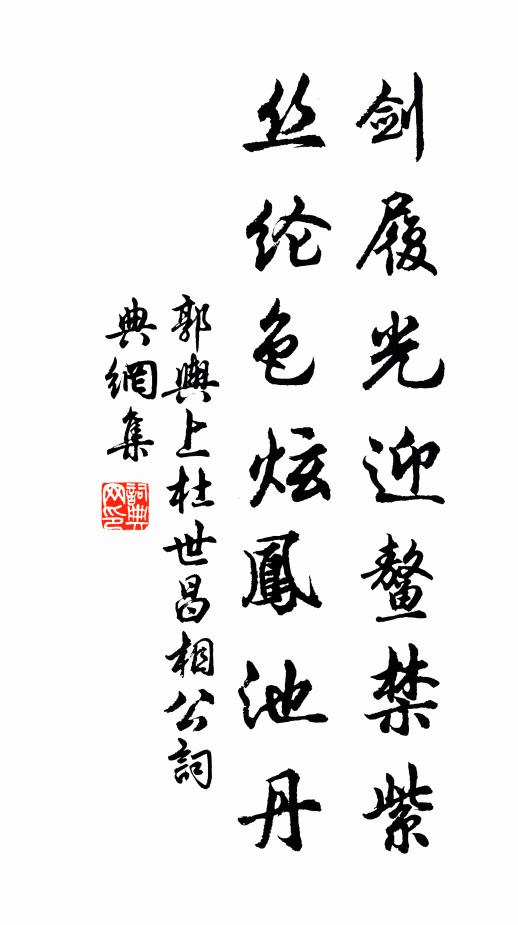 剑履光迎鳌禁紫
丝纶色炫鳳池丹
郭輿上杜世昌相公詞
典網集
詞典
网印